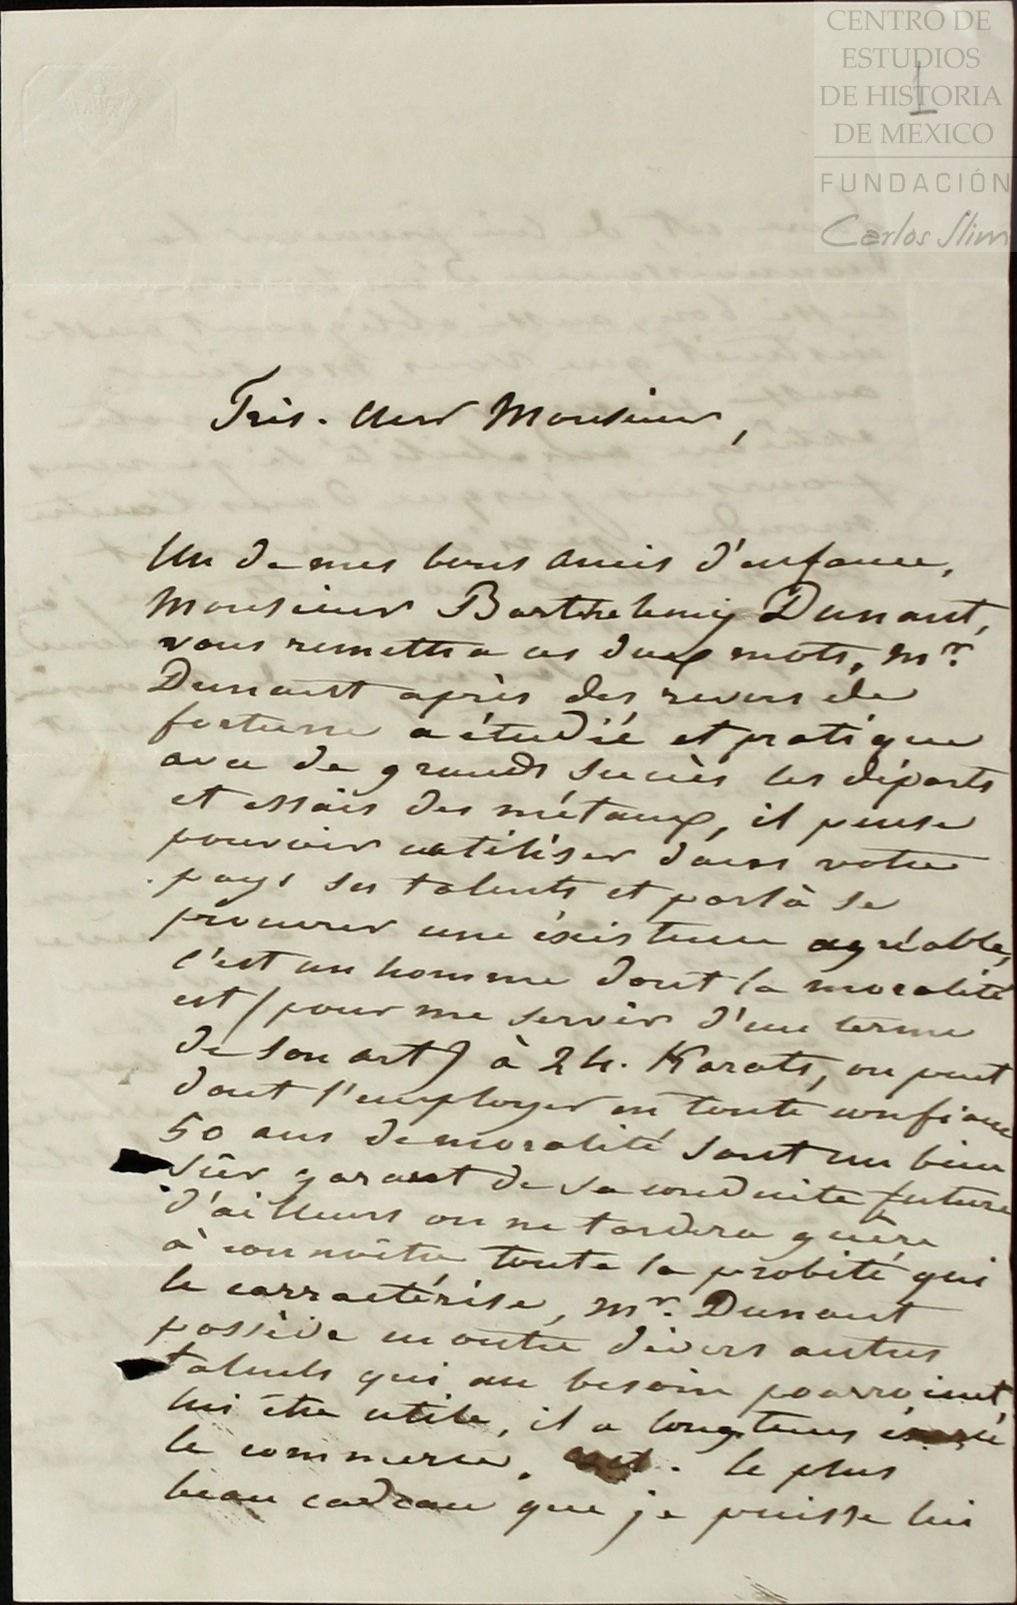 CENTRO DE
ESTUDIOS
DE HISTORIA
DE MEXICO
FUNDACIÓN
Carlos Slim
1
Très. cher Monsieur,
Un de mes bons amis d'enfance,
Monsieur Barthelemy Dunant,
vous remettra ces deux mots, Mr.
Dunant après des revers de
fortune a étudié et pratiqué
avec de grands succès les départs
et essais des métaux, il pense
pouvoir utiliser dans votre
pays ses talents et par là se
procurer une éxistence agréable,
c'est un homme dont la moralité
est (pour me servir d'un terme
de son art) à 24. Karats, on peut
dont l'employer en toute confiance
50 ans de moralité sont un bien
sûr garant de sa conduite future
d'ailleurs on ne tardera guère
à connoitre toute la probité qui
le carractérise, Mr. Dunant
possède en outre divers autres
talents qui au besoin pourroient
lui être utile, il a longtems
le commerce. le plus
beau cadeau que je puisse lui